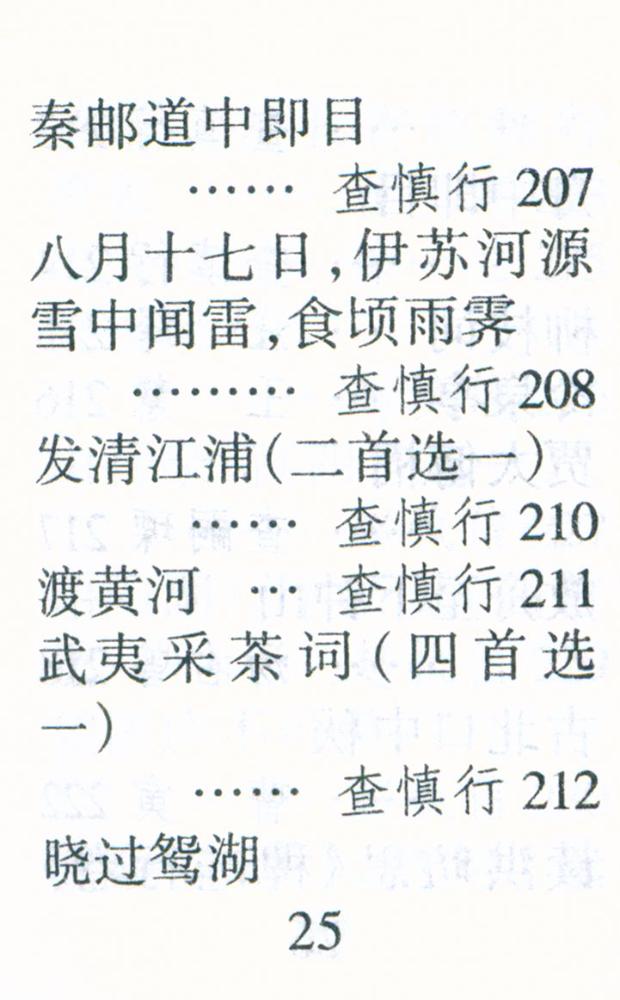 秦邮道中即目
…… 查慎行 207
八月十七日,伊苏河源
雪中闻雷,食顷雨霁
……… 查慎行 208
发清江浦(二首选一)
…… 查慎行 210
渡黄河 … 查慎行 211
武夷采茶词(四首选
一)
…… 查慎行 212
晓过鸳湖
25